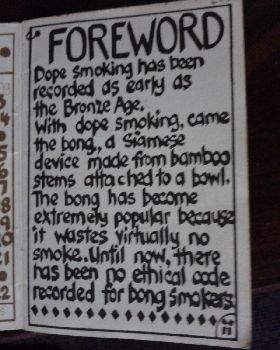 FOREWORD
Dope smoking has been
recorded as early as
the Bronze Age.
With dope smoking, came
the bong, a Siamese
device made from bamboo
stems attached to a bowl.
The bong has become
extremely popular because
it wastes virtually no
smoke. Until now, there
has been no ethical code
recorded for bong smokers.